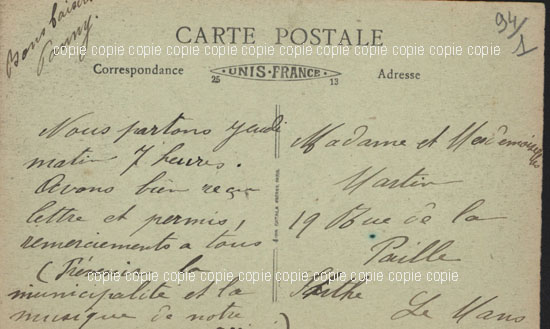 Bons baisers
Fanny.
94/1
CARTE POSTALE
copie copie copie copie copie copie copie copie copie
Correspondance
UNIS-FRANCE
25
13
Adresse
Nous partons jeudi
matin 7 heures.
Avons bien reçu
lettre et permis,
remerciements a tous
la
municipalite et la
musique de notre
Madame et Mesdemoiselles
Martin
19 Rue de la
Paille
Sarthe
Le Mans
copie copie copie copie copie copie copie copie copie